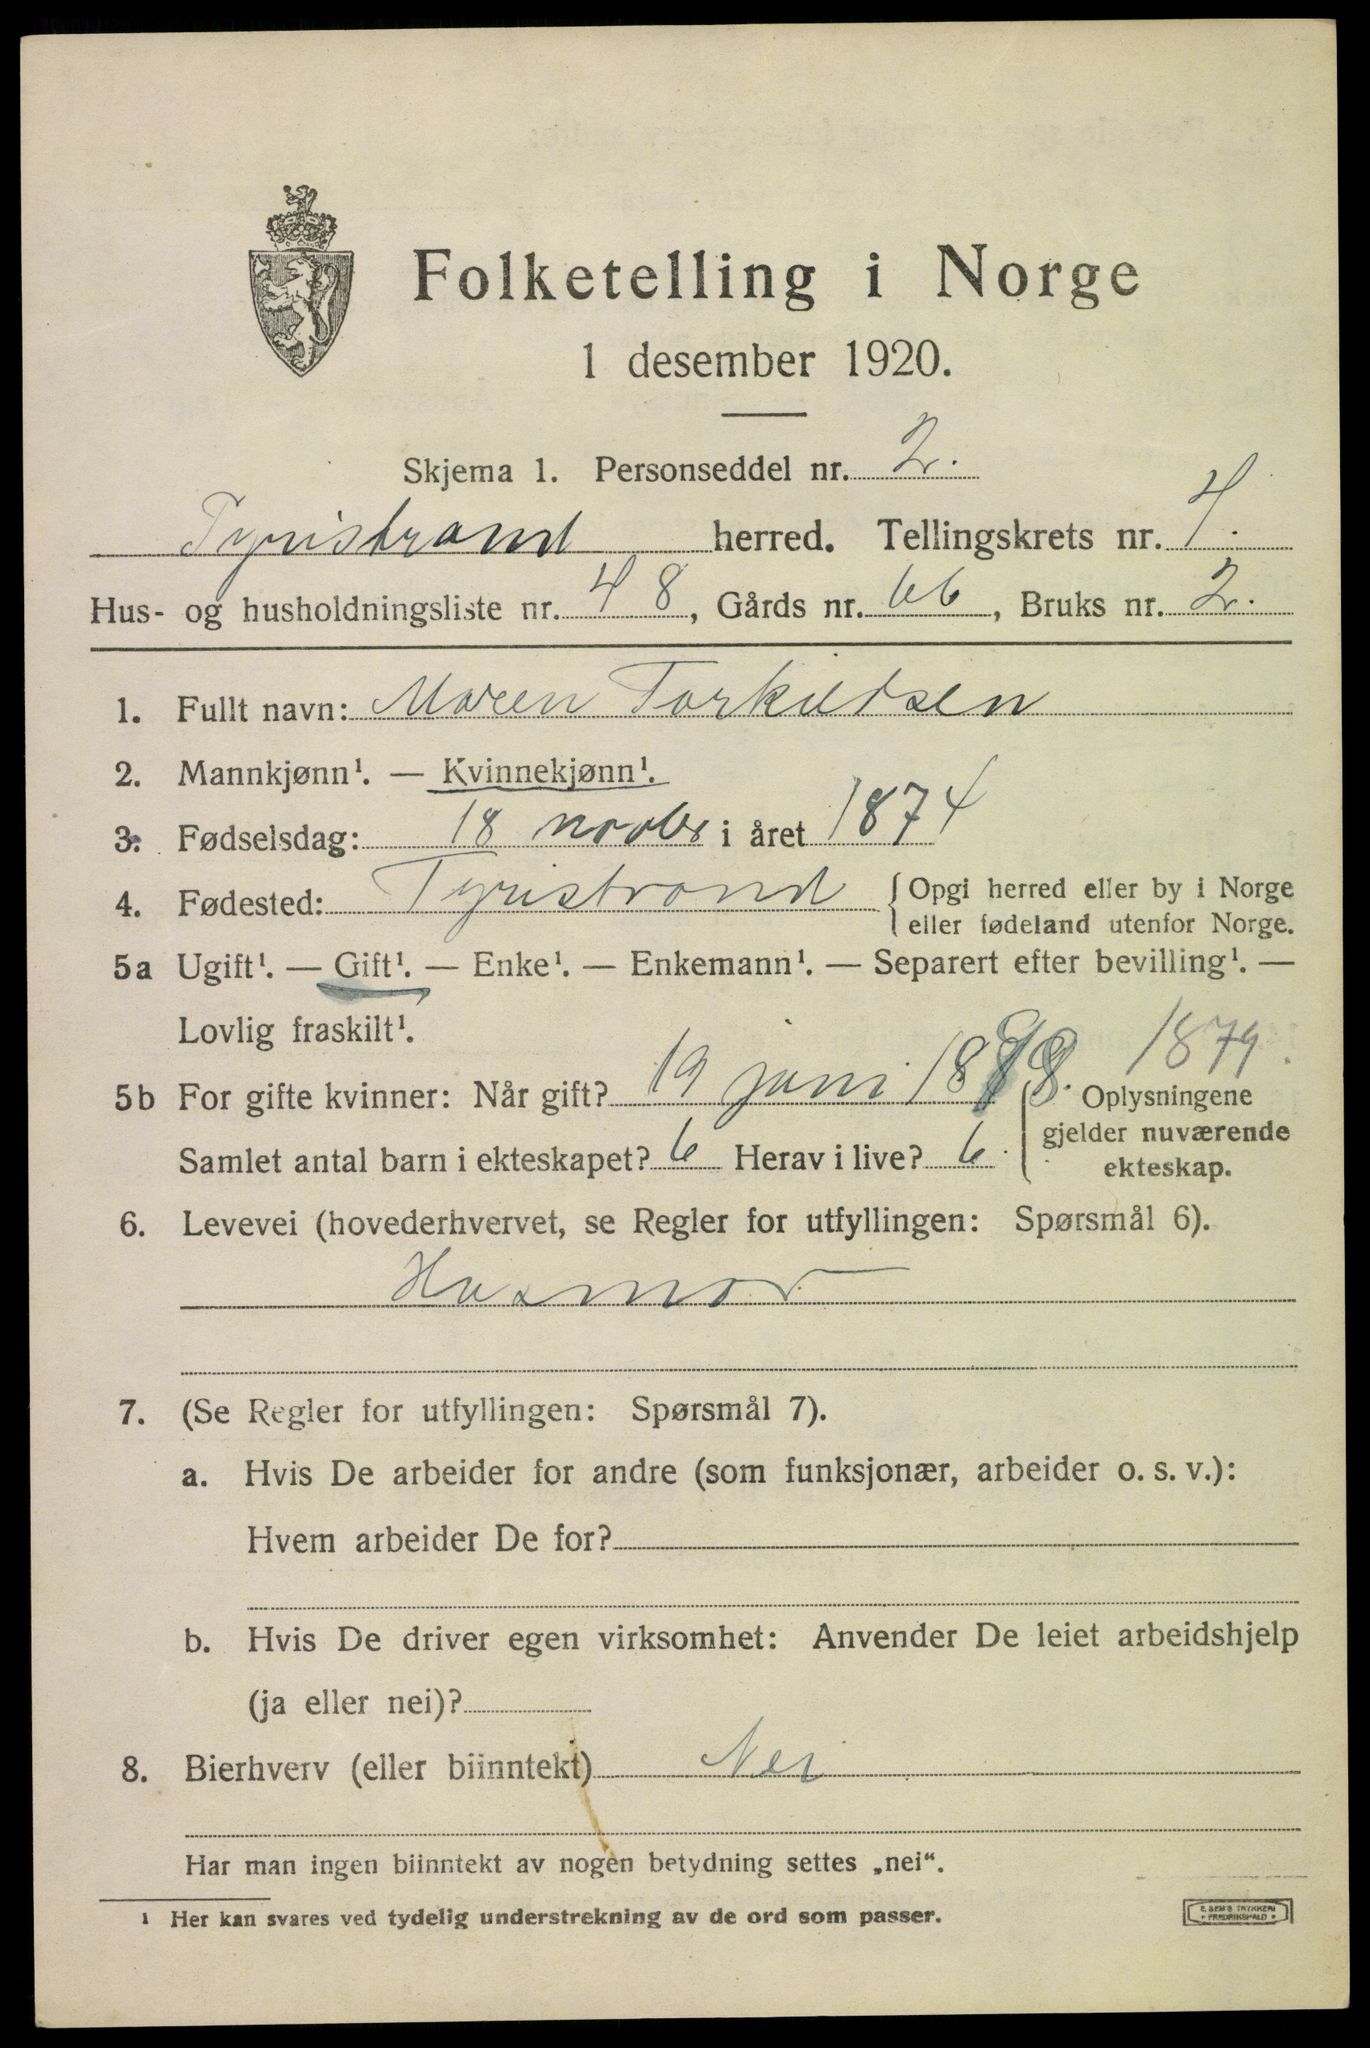 Folketelling i Norge
1 desember 1920.
Skjema 1. Personseddel nr. 2.
Tyristrand herred. Tellingskrets nr. 4.
Hus- og husholdningsliste nr. 48, Gårds nr. 66, Bruks nr. 2.
1. Fullt navn: Maren Torkildsen
2. Mannkjønn¹. — Kvinnekjønn¹.
3. Fødselsdag: 18 novbr i året 1874
4. Fødested: Tyristrand { Opgi herred eller by i Norge
eller fødeland utenfor Norge.
5a Ugift¹. — Gift¹. — Enke¹. — Enkemann¹. — Separert efter bevilling¹. —
Lovlig fraskilt¹.
1879.
5b For gifte kvinner: Når gift? 19 juni 1898. { Oplysningene
gjelder nuværende
Samlet antal barn i ekteskapet? 6 Herav i live? 6. ekteskap.
6. Levevei (hovederhvervet, se Regler for utfyllingen: Spørsmål 6).
Husmor
7. (Se Regler for utfyllingen: Spørsmål 7).
a. Hvis De arbeider for andre (som funksjonær, arbeider o. s. v.):
Hvem arbeider De for?
b. Hvis De driver egen virksomhet: Anvender De leiet arbeidshjelp
(ja eller nei)?
8. Bierhverv (eller biinntekt) Nei
Har man ingen biinntekt av nogen betydning settes „nei“.
¹ Her kan svares ved tydelig understrekning av de ord som passer.
E. SEM'S TRYKKERI
• FREDRIKSHALD •